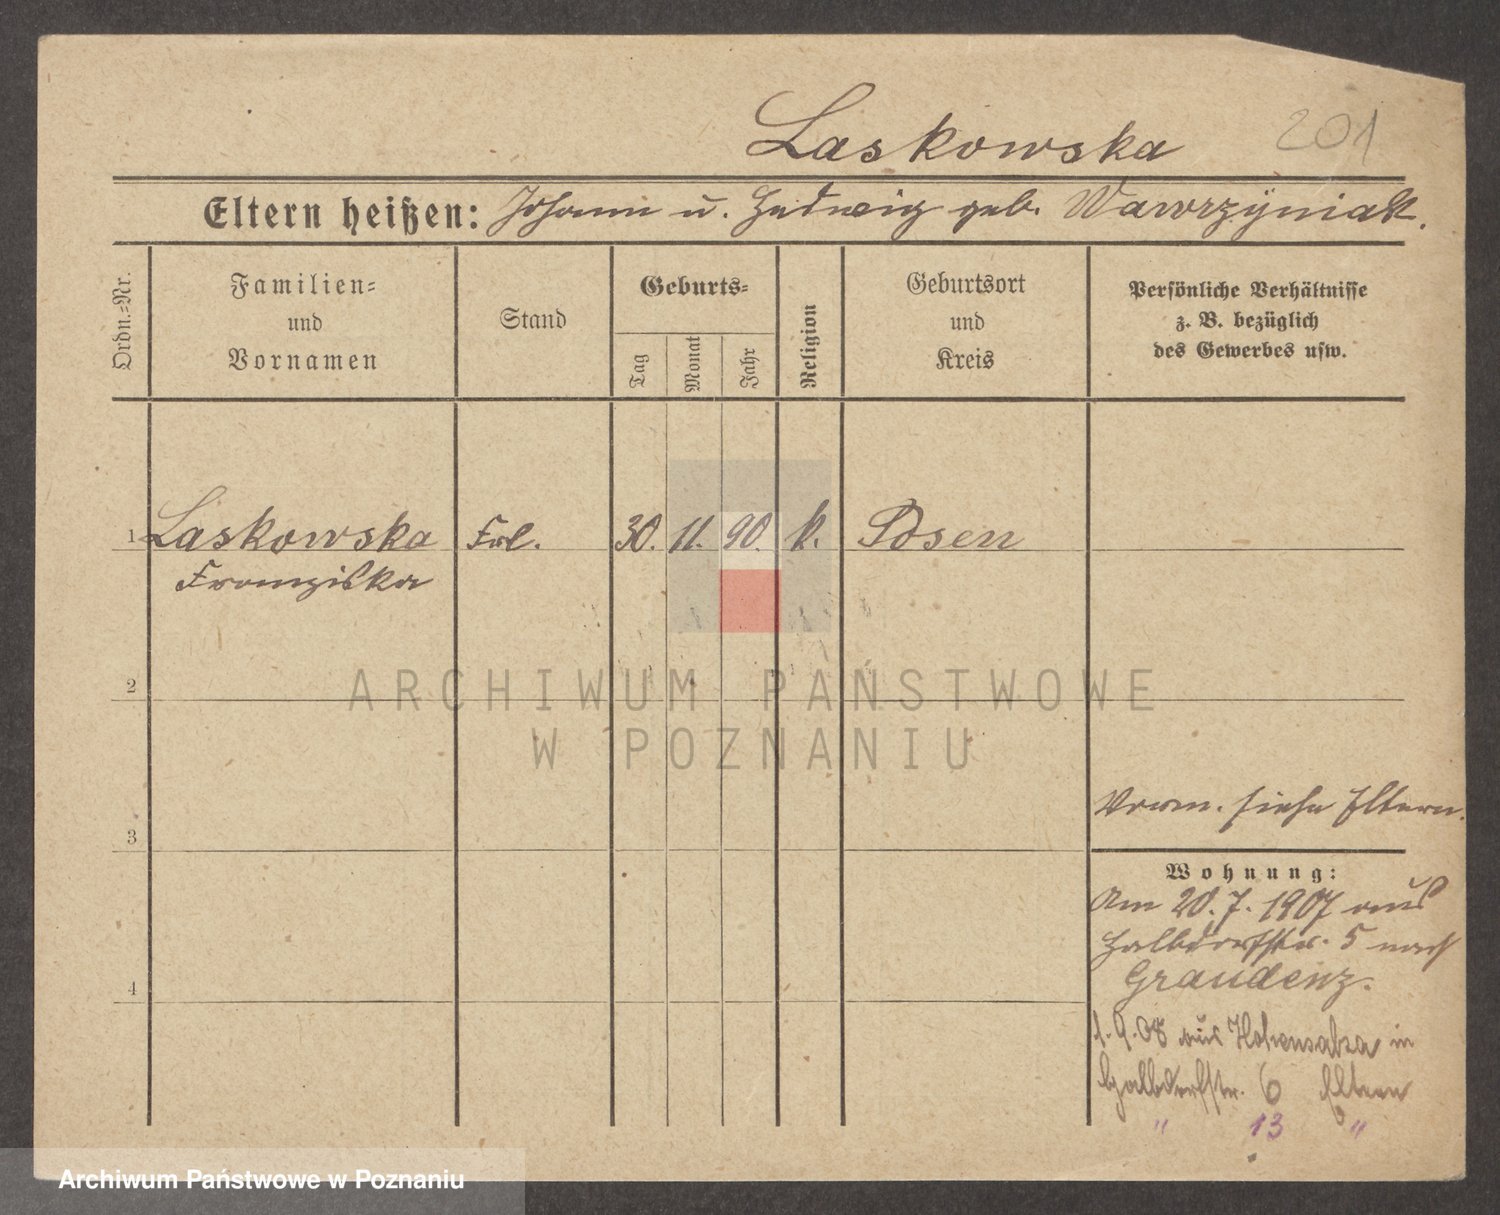 Laskowska 201
Eltern heißen: Johann u. Hedwig geb. Wawrzyniak.
Ordn.-Nr.
Familien-
und
Vornamen
Stand
Geburts-
Tag
Monat
Jahr
Religion
Geburtsort
und
Kreis
Persönliche Verhältnisse
z. B. bezüglich
des Gewerbes usw.
1 Laskowska Frl. 30. 11. 90. k. Posen
Franziska
2
ARCHIWUM PAŃSTWOWE
W POZNANIU
Verm. siehe Eltern.
3
Wohnung:
Am 20. 7. 1907 aus
Halbdorfstr. 5 nach
Graudenz.
4
1.9.08 aus Hohensalza in
Halbdorfstr. 6 Eltern
" 13 "
Archiwum Państwowe w Poznaniu